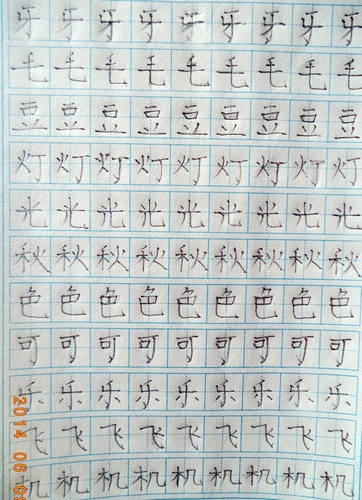 牙牙牙牙牙牙牙牙牙
毛毛毛毛毛毛毛毛毛
豆豆豆豆豆豆豆豆豆
灯灯灯灯灯灯灯灯灯
光光光光光光光光光
秋秋秋秋秋秋秋秋秋
色色色色色色色色色
可可可可可可可可可
乐乐乐乐乐乐乐乐乐
飞飞飞飞飞飞飞飞飞
机机机机机机机机机
2014 06